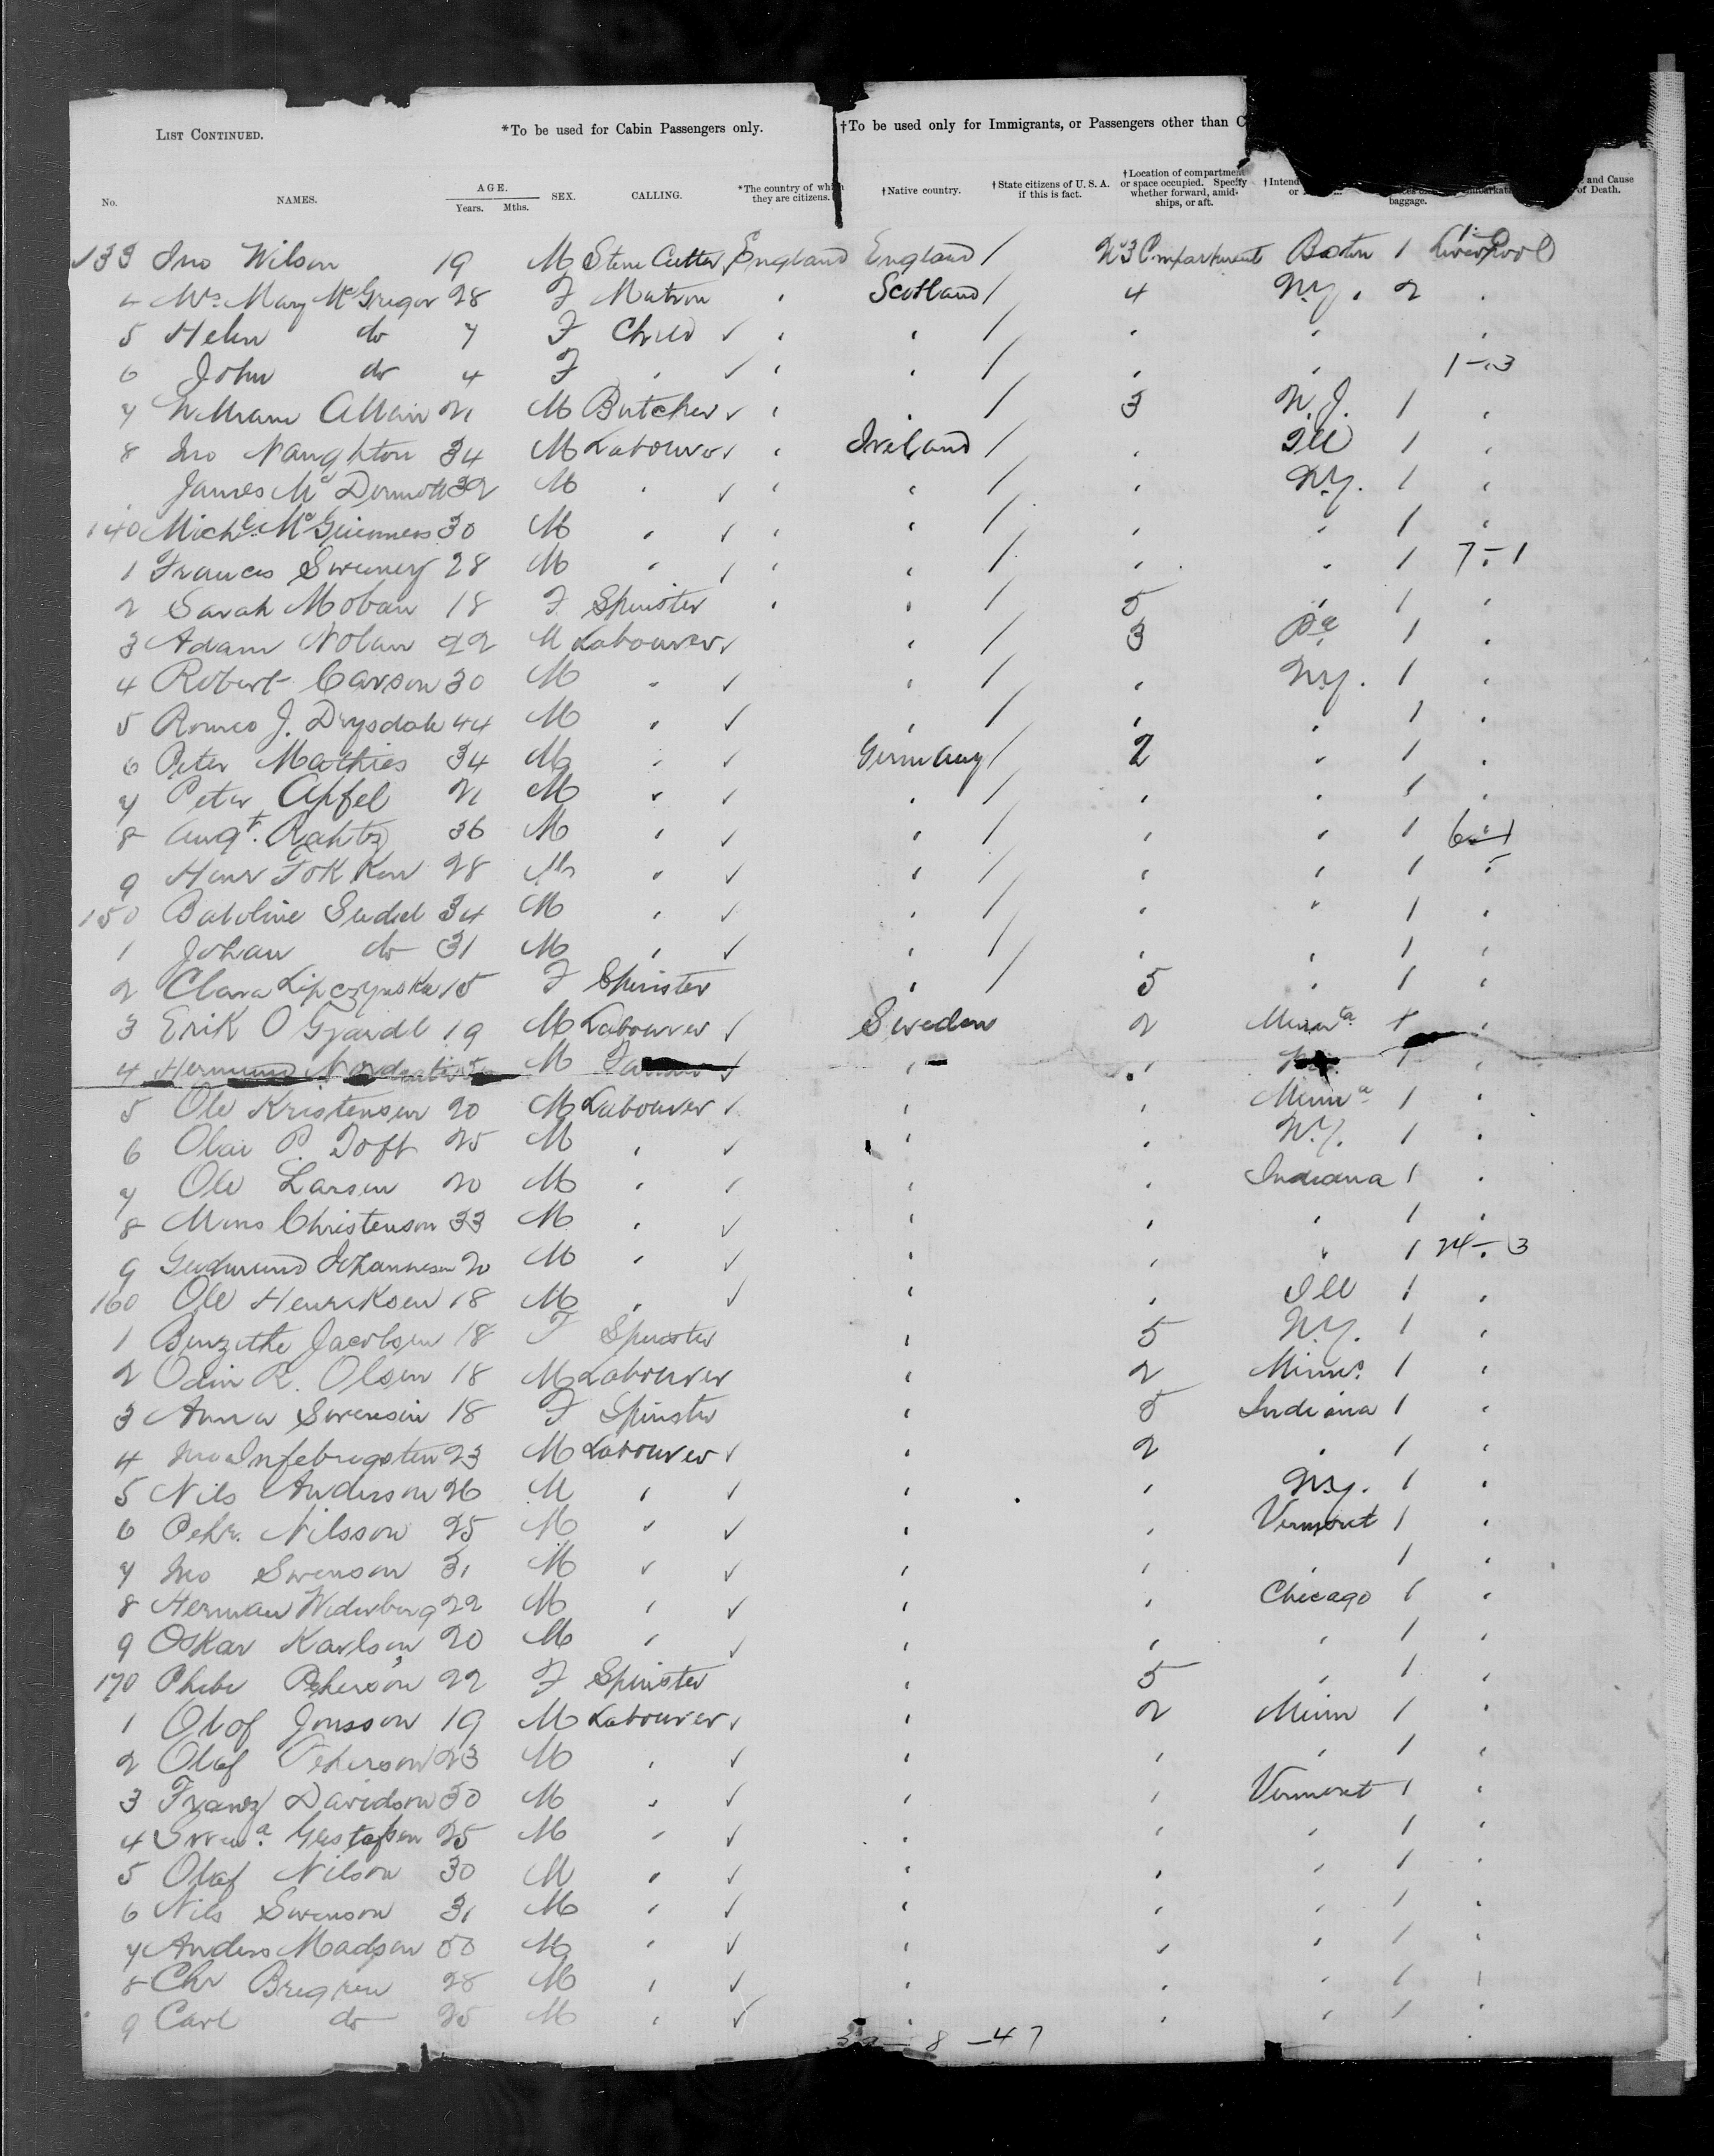 LIST CONTINUED. *To be used for Cabin Passengers only. †To be used only for Immigrants, or Passengers other than C
No. NAMES. AGE. Years. Mths. SEX. CALLING. *The country of which they are citizens. †Native country. †State citizens of U. S. A. if this is fact. †Location of compartment or space occupied. Specify whether forward, amidships, or aft. †Intend or baggage. and Cause of Death.
133 Jno Wilson 19 M Stone Cutter England England / No 3 Compartment Boston 1 Liverpool
4 Mrs Mary McGregor 28 F Matron " Scotland / 4 N.Y. 2 "
5 Helen do 7 F Child ✓ " " / " " "
6 John do 4 F " ✓ " " / " " 1-3
7 William Allain 21 M Butcher ✓ " " / 3 N.J. 1 "
8 Jno Naughton 34 M Labourer ✓ " Ireland / " Ill 1 "
" James McDermott 32 M " ✓ " " / " N.Y. 1 "
140 Michl. McGuinness 30 M " ✓ " " / " " 1 "
1 Frances Sweeney 28 M " ✓ " " / " " 1 7-1
2 Sarah Moban 18 F Spinster " " / 5 " 1 "
3 Adam Nolan 22 M Labourer ✓ " / 3 Pa 1 "
4 Robert Carson 30 M " ✓ " / " N.Y. 1 "
5 Romeo J. Drysdale 44 M " ✓ " / " " 1 "
6 Peter Mathies 34 M " ✓ Germany / 2 " 1 "
7 Peter Apfel 21 M " ✓ " / " " 1 "
8 Augt. Rahtz 36 M " ✓ " / " " 1 6-1
9 28 M " ✓ " / " " 1 "
150 34 M " ✓ " / " " 1 "
1 Johan do 31 M " ✓ " / " " 1 "
2 Clara Lipczynska 15 F Spinster " / 5 " 1 "
3 Erik O 19 M Labourer ✓ Sweden 2 Minna 1 "
4 M ✓ " " 1 "
5 Ole Kristensen 20 M Labourer ✓ " " Minna 1 "
6 Olai P. Toft 25 M " ✓ " " N.Y. 1 "
7 Ole Larsen 20 M " ✓ " " Indiana 1 "
8 Mons Christenson 33 M " ✓ " " " 1 "
9 Gudmund Johannesen 20 M " ✓ " " " 1 24-3
160 Ole Henriksen 18 M " ✓ " " Ill 1 "
1 Jacobsen 18 F Spinster " 5 N.Y. 1 "
2 Odin R. Olsen 18 M Labourer " 2 Minna 1 "
3 Anna Swensin 18 F Spinster " 5 Indiana 1 "
4 Jno 23 M Labourer ✓ " 2 " 1 "
5 Nils Anderson 26 M " ✓ " " N.Y. 1 "
6 Pehr. Nilsson 25 M " ✓ " " Vermont 1 "
7 Jno Swenson 31 M " ✓ " " " 1 "
8 Herman Widerberg 22 M " ✓ " " Chicago 1 "
9 Oskar Karlson 20 M " ✓ " " " 1 "
170 Phebe Peherson 22 F Spinster " 5 " 1 "
1 Olof Jonsson 19 M Labourer ✓ " 2 Minn 1 "
2 Olof Peherson 23 M " ✓ " " " 1 "
3 Franz Davidson 30 M " ✓ " " Vermont 1 "
4 Gustafsen 25 M " ✓ " " " 1 "
5 Olaf Nilson 30 M " ✓ " " " 1 "
6 Nils Swenson 31 M " ✓ " " " 1 "
7 Anders Madsen 50 M " ✓ " " " 1 "
8 Chr Bregren 28 M " ✓ " " " 1 "
9 Carl do 25 M " ✓ " " " 1 "
8 - 47